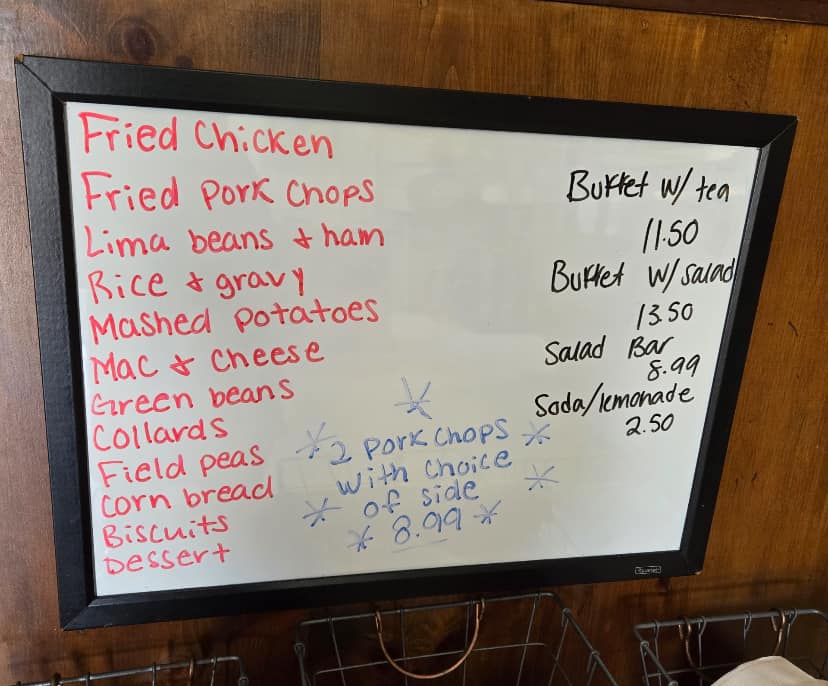 Fried Chicken
Fried Pork Chops
Lima beans & ham
Rice & gravy
Mashed Potatoes
Mac & Cheese
Green beans
Collards
Field peas
Corn bread
Biscuits
Dessert
2 Pork Chops
with Choice
of side
8.99
Buffet w/ tea
11.50
Buffet w/ salad
13.50
Salad Bar
8.99
Soda/lemonade
2.50